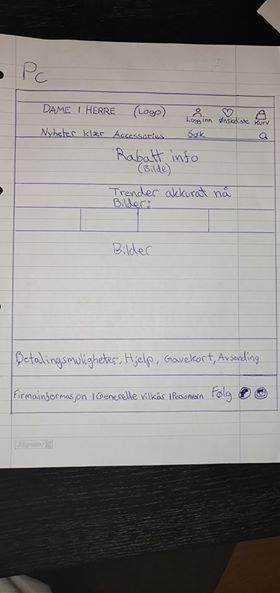 PC
DAME I HERRE (Logo)
Logg inn Ønskeliste Kurv
Nyheter klær Accessories Søk
Rabatt info
(Bilde)
Trender akkurat nå
Bilder:
Bilder
Betalingsmuligheter, Hjelp, Gavekort, Avsending
Firmainformasjon | Generelle vilkår | Personvern Følg